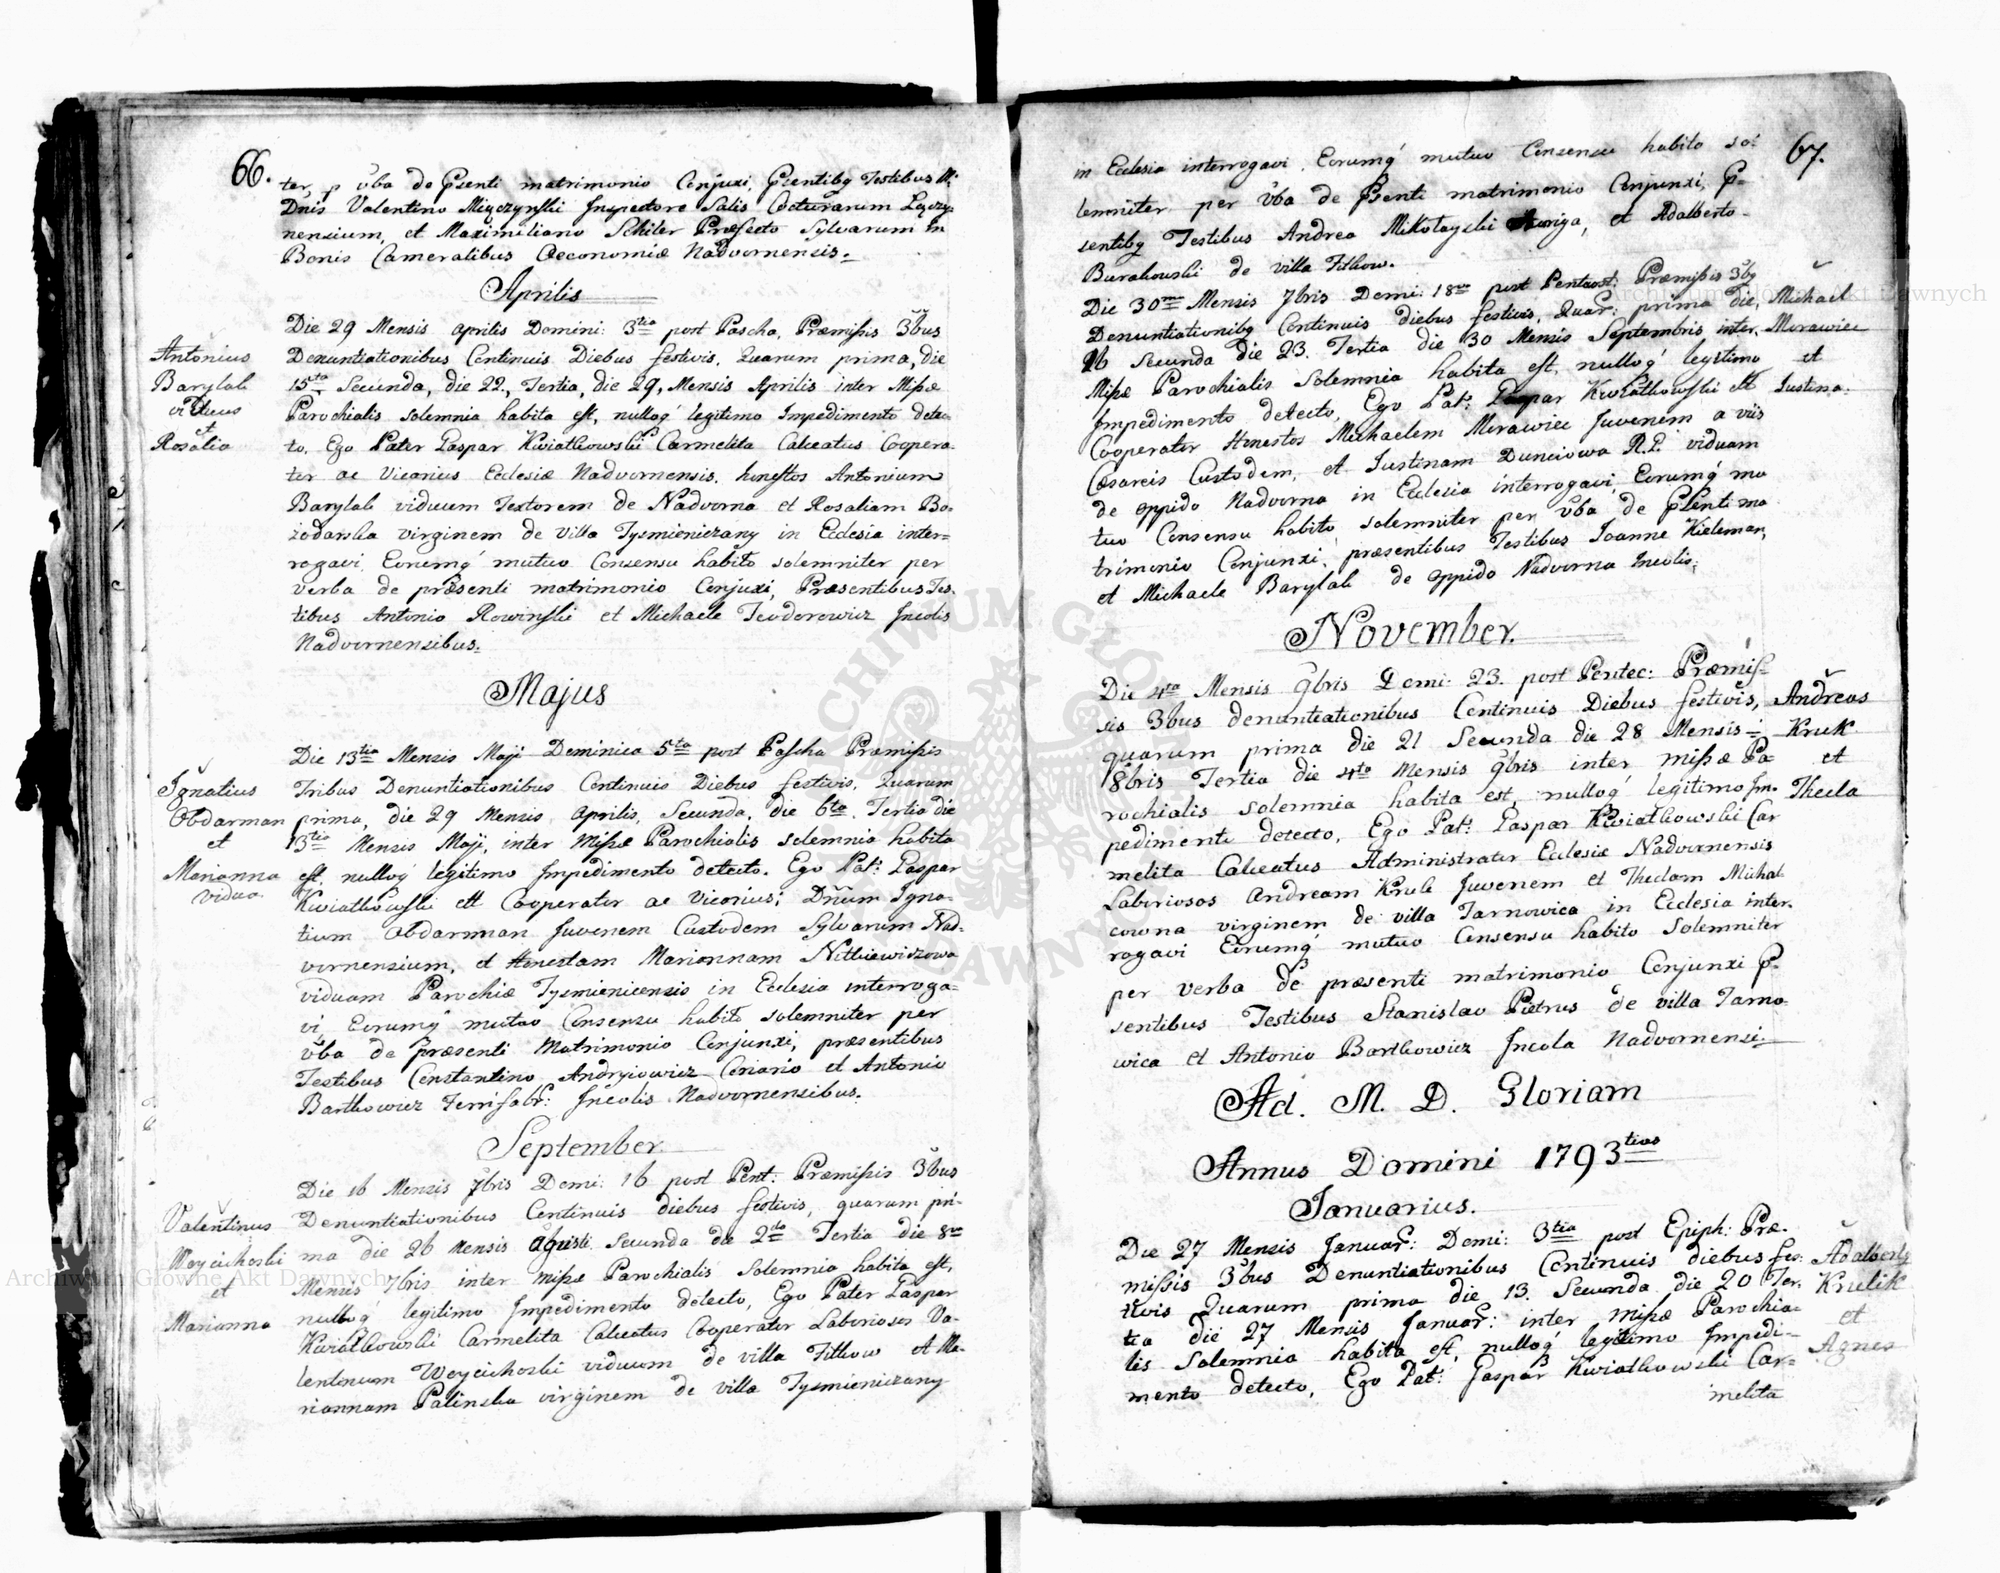 66.
ter, p vba de Psenti matrimonio Conjuxi, Psentibg Testibus M:
Dnis Valentino Miączyński Inspectore Salis Cocturarum Łączy-
nensium, et Maximiliano Schiler Præfecto Sylvarum in
Bonis Cameralibus Oeconomiæ Nadvornensis.
Aprilis
Antonius
Barylak
viduus
et
Rosalia
Die 29 Mensis Aprilis Domini: 3tia post Pascha, Præmissis 3bus
Denuntiationibus Continuis Diebus festivis, Quarum prima, die
15ta Secunda, die 22, Tertia, die 29, Mensis Aprilis inter Missæ
Parochialis solemnia habita est, nulloq́ legitimo Impedimento detec-
to, Ego Pater Gaspar Kwiatkowski Carmelita Calceatus Coopera-
tor ac Vicarius Ecclesiæ Nadvornensis, honestos Antonium
Barylak viduum Textorem de Nadvorna et Rosaliam Bo-
żodarska virginem de Villa Tysmieniczany in Ecclesia inter=
rogavi, Eorumq́ mutuo Consensu habito solemniter per
verba de præsenti matrimonio Conjuxi, Præsentibus Tes-
tibus Antonio Rowinski et Michaele Teodorowicz Incolis
Nadvornensibus.
Majus
Ignatius
Obdarman
et
Marianna
vidua
Die 13tia Mensis Maji Dominica 5ta post Pascha Præmissis
Tribus Denuntiationibus Continuis Diebus festivis, Quarum
prima, die 29 Mensis Aprilis, Secunda, die 6ta, Tertia die
13tia Mensis Maji, inter Missæ Parochialis solemnia habita
est, nulloq́ legitimo Impedimento detecto. Ego Pat: Gaspar
Kwiatkowski Ctt Cooperator ac Vicarius; Dnum Igna-
tium Obdarman Juvenem Custodem Sylvarum Nad-
vornensium, et Honestam Mariannam Nitkiewiczowa
viduam Parochiæ Tysmienicensis in Ecclesia interroga-
vi, Eorumq́ mutuo Consensu habito solemniter per
vba de præsenti Matrimonio Conjunxi, præsentibus
Testibus Constantino Andryiowicz Coriario et Antonio
Bartkowicz Ferrifabr: Incolis Nadvornensibus.
September
Valentinus
Woyciechoski
et
Marianna
Die 16 Mensis 7bris Domi: 16 post Pent: Præmissis 3bus
Denuntiationibus Continuis diebus festivis, quarum pri-
ma die 26 Mensis Agusti Secunda die 2da Tertia die 8va
Mensis 7bris inter Missæ Parochialis Solemnia habita est,
nulloq́ legitimo Impedimento detecto, Ego Pater Gaspar
Kwiatkowski Carmelita Calceatus Cooperator Laboriosos Va-
lentinum Woyciechoski viduum de villa Fitkow et Ma-
riannam Palinska virginem de villa Tysmieniczany
67.
in Ecclesia interrogavi Eorumq́ mutuo Consensu habito so-
lemniter per vba de Psenti matrimonio Conjunxi, P-
sentibg Testibus Andrea Mikołayski Auriga, et Adalberto
Burakowski de villa Fitkow.
Die 30ma Mensis 7bris Domi: 18va post Pentcost: Præmissis 3bg
Denuntiationibg Continuis diebus festivis, Quar: prima die,
16 Secunda die 23. Tertia die 30 Mensis Septembris inter
Missæ Parochialis Solemnia habita est, nulloq́ legitimo
Impedimento detecto, Ego Pat: Gaspar Kwiatkowski Ctt
Cooperator Honestos Michaelem Morawiec Juvenem a viis
Cæsareis Custodem, et Justinam Dunciowa R.L. viduam
de oppido Nadvorna in Ecclesia interrogavi, Eorumq́ mu
tuo Consensu habito solemniter per vba de Psenti ma
trimonio Conjunxi, præsentibus Testibus Joanne Kieleman,
et Michaele Barylak de oppido Nadvorna Incolis.
Michael
Morawiec
et
Justina
November.
Die 4ta Mensis 9bris Domi: 23. post Pentec: Præmis-
sis 3bus denuntiationibus Continuis Diebus festivis,
quarum prima die 21 Secunda die 28 Mensis
8bris Tertia die 4ta Mensis 9bris inter missæ Pa
rochialis solemnia habita est, nulloq́ legitimo Im-
pedimento detecto, Ego Pat: Gaspar Kwiatkowski Car
melita Calceatus Administrator Ecclesiæ Nadvornensis
Laboriosos Andream Kruk Juvenem et Theclam Michal
cowna virginem de villa Tarnowica in Ecclesia inter-
rogavi Eorumq́ mutuo Consensu habito Solemniter
per verba de præsenti matrimonio Conjunxi P-
sentibus Testibus Stanislao Pietrus de villa Tarno-
wica et Antonio Bartkowicz Incola Nadvornensi
Andreas
Kruk
et
Thecla
Ad. M. D. Gloriam
Annus Domini 1793tius
Januarius.
Die 27 Mensis Januar: Domi: 3tia post Epiph: Præ-
missis 3bus Denuntiationibus Continuis diebus fes-
tivis Quarum prima die 13. Secunda die 20 Ter-
tia die 27 Mensis Januar: inter Missæ Parochia-
lis Solemnia habita est, nulloq́ legitimo Impedi-
mento detecto, Ego Pat: Gaspar Kwiatkowski Car=
melita
Adalbertg
Krulik
et
Agnes
Archiwum Główne Akt Dawnych
Archiwum Główne Akt Dawnych
ARCHIWUM GŁÓWNE AKT DAWNYCH